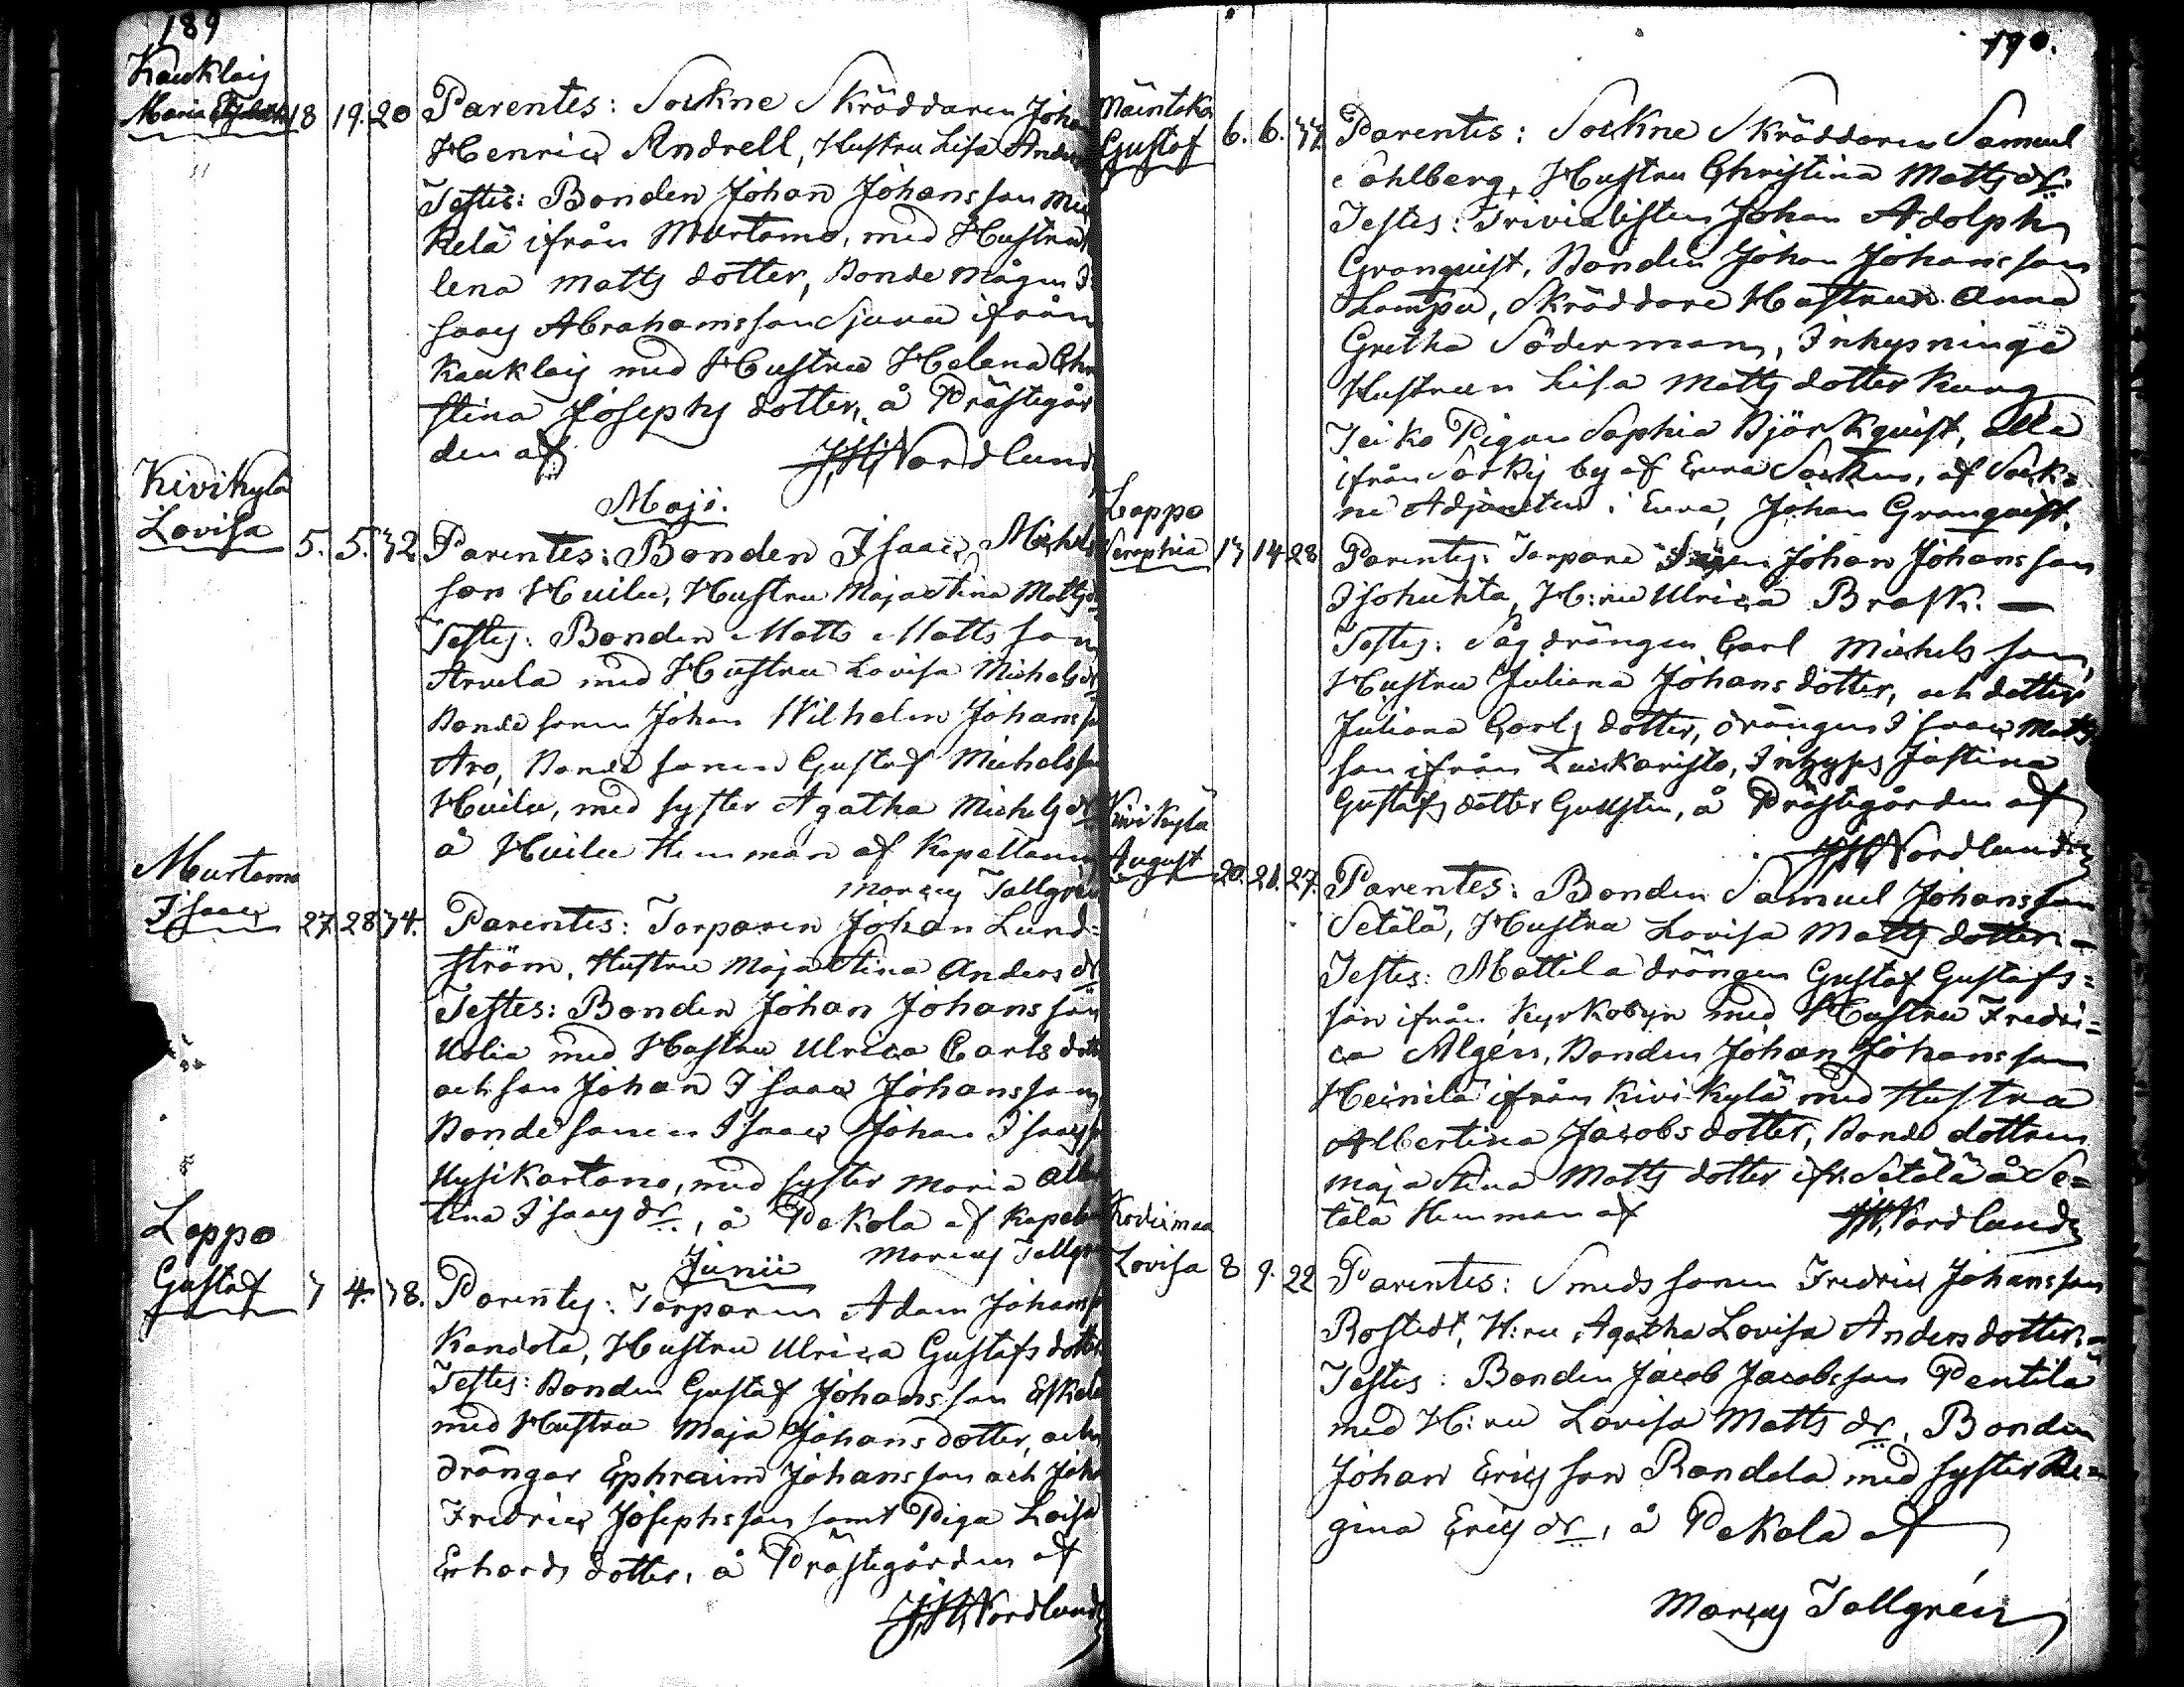 189
Kauklais
Maria 18 19. 20 Parentes: Sockne Skräddaren Joha
Henric Andrell, Hustru Lisa Anders
Testes: Bonden Johan Johansson Mic
kelä ifrån Murtamo, med Hustru
lena Matts dotter, Bonde mågen I
saac Abrahamsson Sjuru ifrån
Kauklais med Hustru Helena Chri
stina Josephs dotter, å Prästegår
den af J.H. Nordlund
Maji.
Kivikylä
Lovisa 5. 5. 32 Parentes: Bonden Isaac Michels
son Huilu, Hustru Maja Stina Matts dr
Testes: Bonden Matts Matts son
Arvela med Hustru Lovisa Michels dr
Bonde sonen Johan Wilhelm Johansso
Aro, Bonde sonen Gustaf Michelsson
Huilu, med syster Agatha Michels dr
å Huilu Hemman af Kapellanen
Marcus Tallgrén
Murtamo
Isaac 27. 28 34. Parentes: Torparen Johan Lund=
ström, Hustru Maja Stina Anders dr
Testes: Bonden Johan Johansson
Uolia med Hustru Ulrica Carls dott
och son Johan Isaac Johansson
Bonde sonen Isaac Johan Isaacss
Uusikartano, med syster Maria Alber
tina Isaacs dr, å Pekola af Kapellan
Marcus Tallgrén
Junii
Loppo
Gustaf 3 4. 38. Parentes: Torparen Adam Johanss
Kandola, Hustru Ulrica Gustafs dotte
Testes: Bonden Gustaf Johansson Eskola
med Hustru Maja Johans dotter, och
drängar Ephraim Johansson och Joha
Fredric Josephsson samt Piga Lovisa
Erhards dotter, å Prästegården af
J.H. Nordlund
190.
Mäntska
Gustaf 6. 6. 37 Parentes: Sockne Skräddaren Samuel
Sahlberg, Hustru Christina Matts dr.
Testes: Trivialisten Johan Adolph
Granquist, Bonden Johan Johansson
Lampu, Skräddare Hustrun Anna
Gretha Söderman, Inhysninge
Hustrun Lisa Matts dotter Kung
Pigan Sophia Björkquist, alla
ifrån Sorkis by af Eura Sockn, af Sock=
ne Adjuncten i Eura, Johan Granquist.
Loppo
Serophia 13 14 28 Parentes: Torpare Johan Johansson
Isohuhta, H:ru Ulrica Brask. —
Testes: Såg drängen Carl Michels son,
Hustru Juliana Johans dotter, och dotter
Juliana Carls dotter, drängen Isaac Matts
son ifrån Luikaristo, Inhyses Justina
Gustafs dotter, å Prästegården af
J.H. Nordlund
Kivikylä
August 20. 21. 27. Parentes: Bonden Samuel Johansson
Setälä, Hustru Lovisa Matts dotter —
Testes: Mattila drängen Gustaf Gustafs=
son ifrån Kyrkobyn med Hustru Fredri=
ca Algén, Bonden Johan Johansson
Heinilä ifrån Kivikylä med Hustru
Albertina Jacobs dotter, Bonde dottren
Maja Stina Matts dotter ifr. Setälä å Se=
tälä Hemman af J.H. Nordlund
Kodiimaa
Lovisa 8 9. 22 Parentes: Smeds sonen Fredric Johansson
Rostedt, H:ru Agatha Lovisa Anders dotter. —
Testes: Bonden Jacob Jacobsson Pentilä
med H:ru Lovisa Matts dr, Bonden
Johan Erics son Randala med syster Re=
gina Erics dr, å Pekola af
Marcus Tallgrén